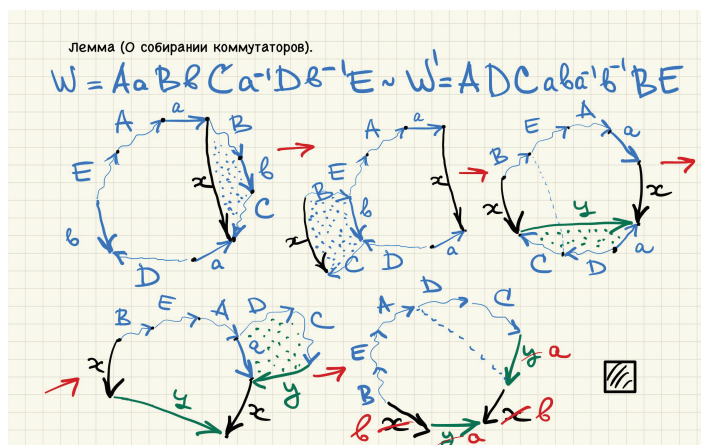 Лемма (О собирании коммутаторов).
W = AaBbCa⁻¹Db⁻¹E ~ W' = ADCaba⁻¹b⁻¹BE
A a B b C x E b D a
A a E B b x x C D a
A a E B x x y C D a
B E A D C a x y y x
A D C E B y a x b b x y a